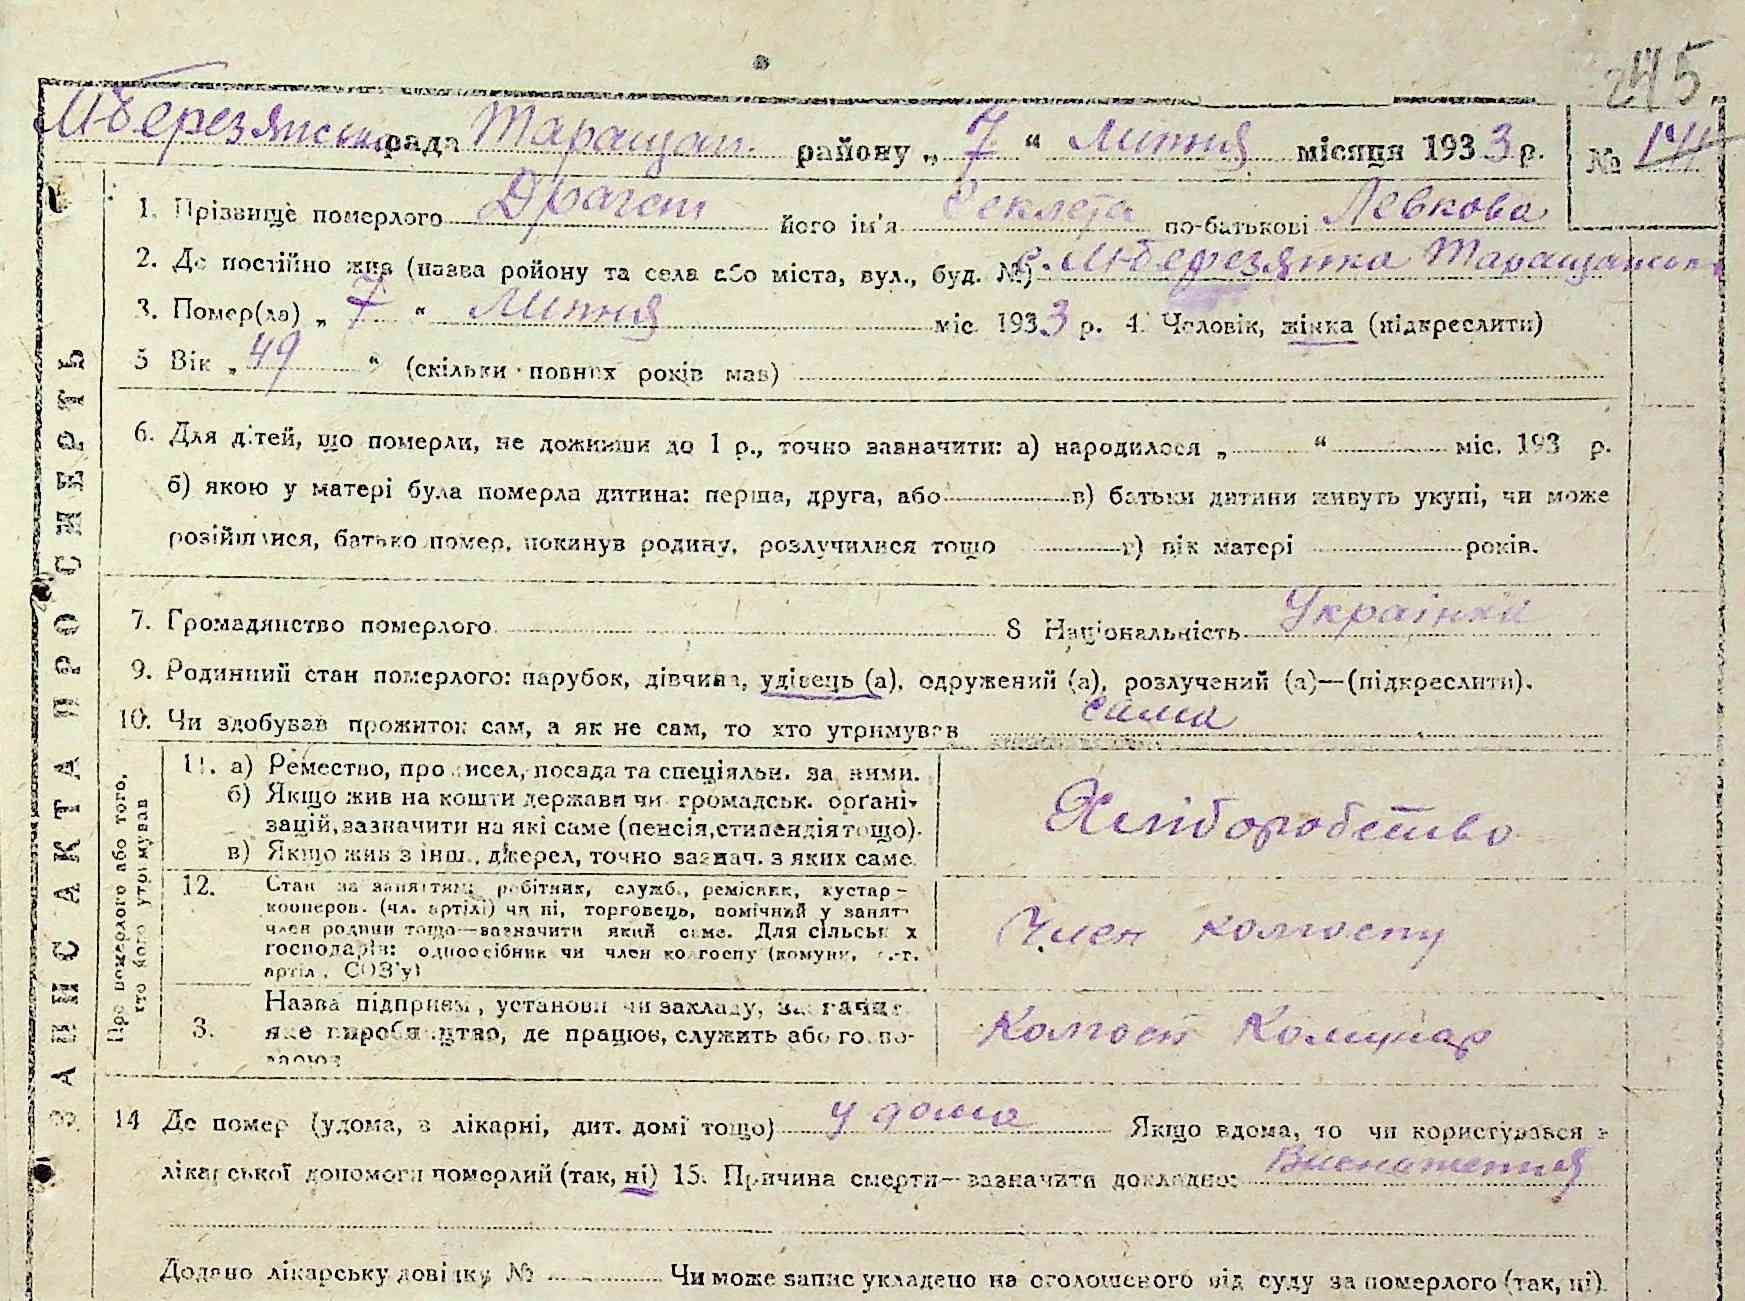 245
Шберезянська рада Таращан. району „ 7 “ Липня місяця 1933 р. №
1. Прізвище померлого Драген його ім'я Секлета по-батькові Левкова
2. Де постійно жив (назва району та села або міста, вул., буд. №) с. Шберезянка Таращанськ
3. Помер(ла) „ 7 “ Липня міс. 1933 р. 4. Чоловік, жінка (підкреслити)
5 Вік „ 49 “ (скільки повних років мав)
6. Для дітей, що померли, не доживши до 1 р., точно зазначити: а) народилося „ “ міс. 193 р.
б) якою у матері була померла дитина: перша, друга, або в) батьки дитини живуть укупі, чи може
розійшлися, батько помер, покинув родину, розлучилися тощо г) вік матері років.
7. Громадянство померлого 8 Національність Українка
9. Родинний стан померлого: парубок, дівчина, удівець (а), одружений (а), розлучений (а)—(підкреслити).
10. Чи здобував прожиток сам, а як не сам, то хто утримував сама
11. а) Ремество, промисел, посада та спеціяльн. за ними.
б) Якщо жив на кошти держави чи громадськ. орґані-
зацій, зазначити на які саме (пенсія, стипендія тощо).
в) Якщо жив з інш. джерел, точно зазнач. з яких саме.
Хліборобство
12. Стан за заняттям: робітник, служб., реміснк, кустар-
кооперов. (чл. артілі) чи ні, торговець, помічний у занят.
член родини тощо—зазначити який саме. Для сільськ х
господарів: одноосібник чи член колгоспу (комуни, с.-г.
артіл, СОЗ'у)
Член колгоспу
3. Назва підприєм, установи чи закладу,
яке виробництво, де працює, служить або госпо-
дарює
Колгосп Комунар
14 Де помер (удома, в лікарні, дит. домі тощо) у дома Якщо вдома, то чи користувався з
лікарської допомоги померлий (так, ні) 15. Причина смерти—зазначити докладно: Виснаження
Додано лікарську довідку № Чи може запис укладено на оголошеного від суду за померлого (так, ні).
ЗАПИС АКТА ПРО СМЕРТЬ
Про померлого або того,
хто його утримував